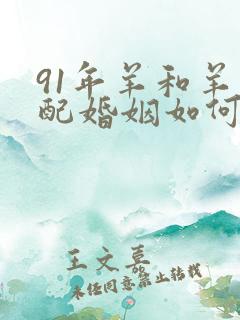 91年羊和羊
配婚姻如何
王文慕
未经同意禁止转载